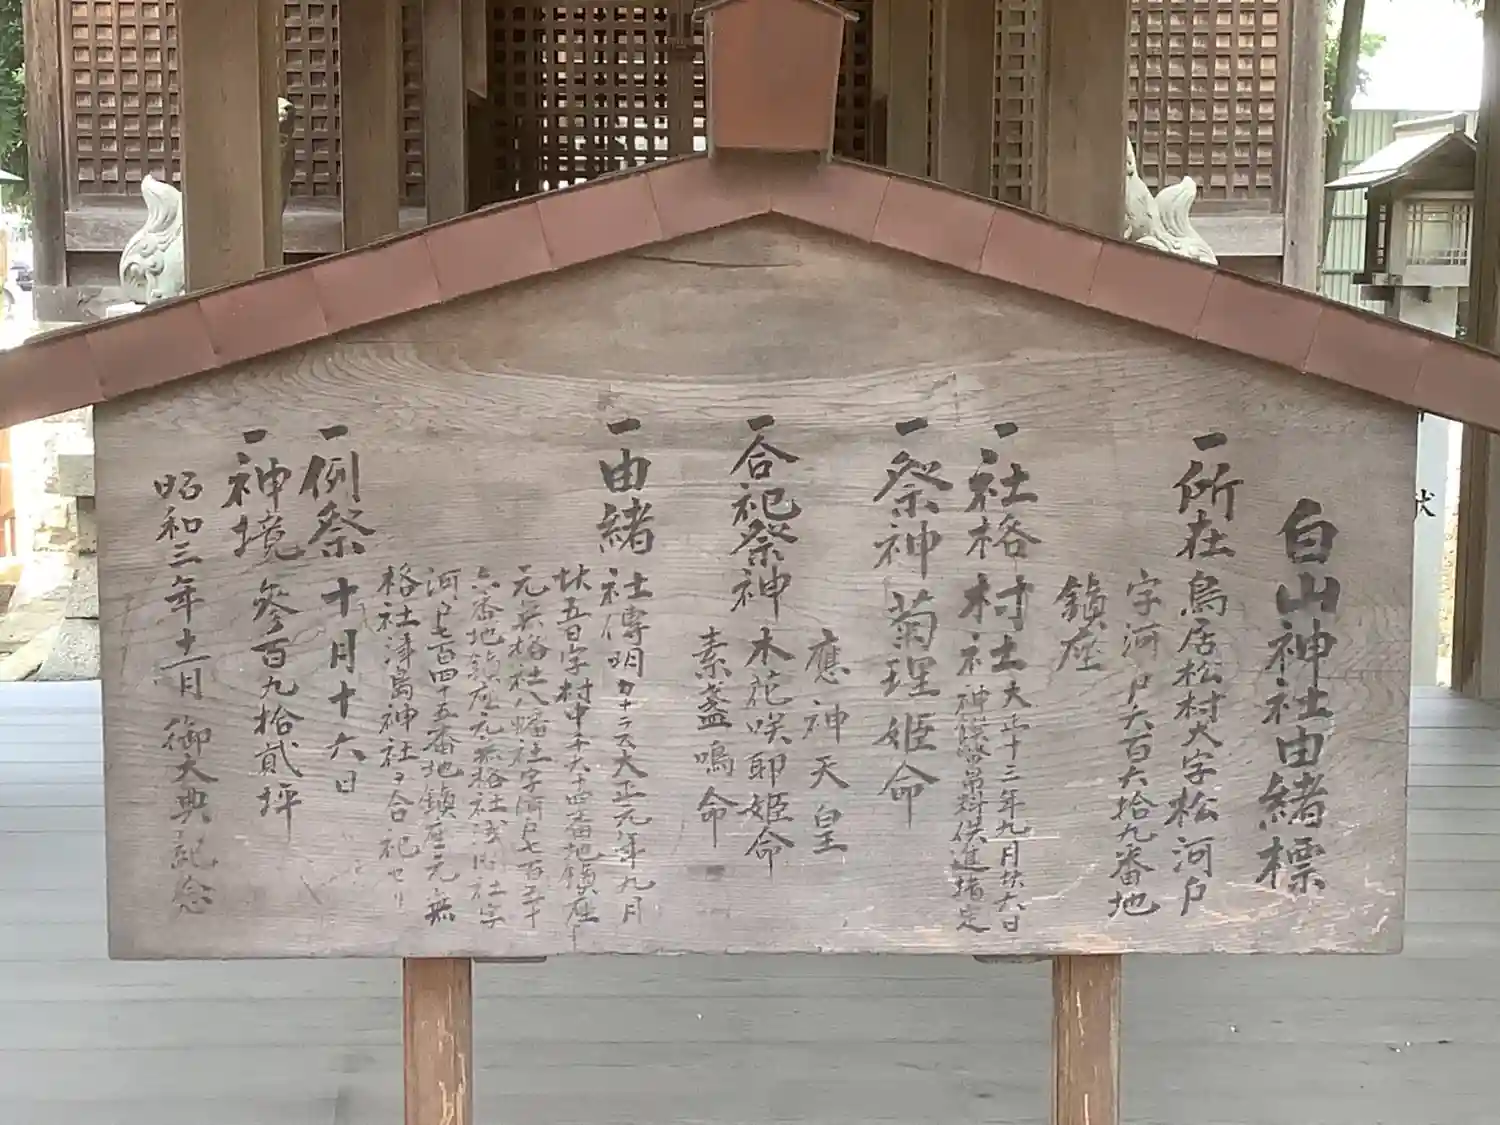 白山神社由緒標
一所在 鳥居松村大字松河戸
字河戸六百六拾九番地
鎮座
一社格 村社 大正十三年九月廿六日
神饌幣帛料供進指定
一祭神 菊理姫命
應神天皇
一合祀祭神 木花咲耶姫命
素盞鳴命
一由緒 社傳明カナラス大正元年九月
廿五日字村中千六十四番地鎮座
元無格社八幡社字河戸七百三十
六番地鎮座元無格社浅間社字
河戸七百四十五番地鎮座元無
格社津島神社ヲ合祀セリ
一例祭 十月十六日
一神境 參百九拾貳坪
昭和三年十一月 御大典記念